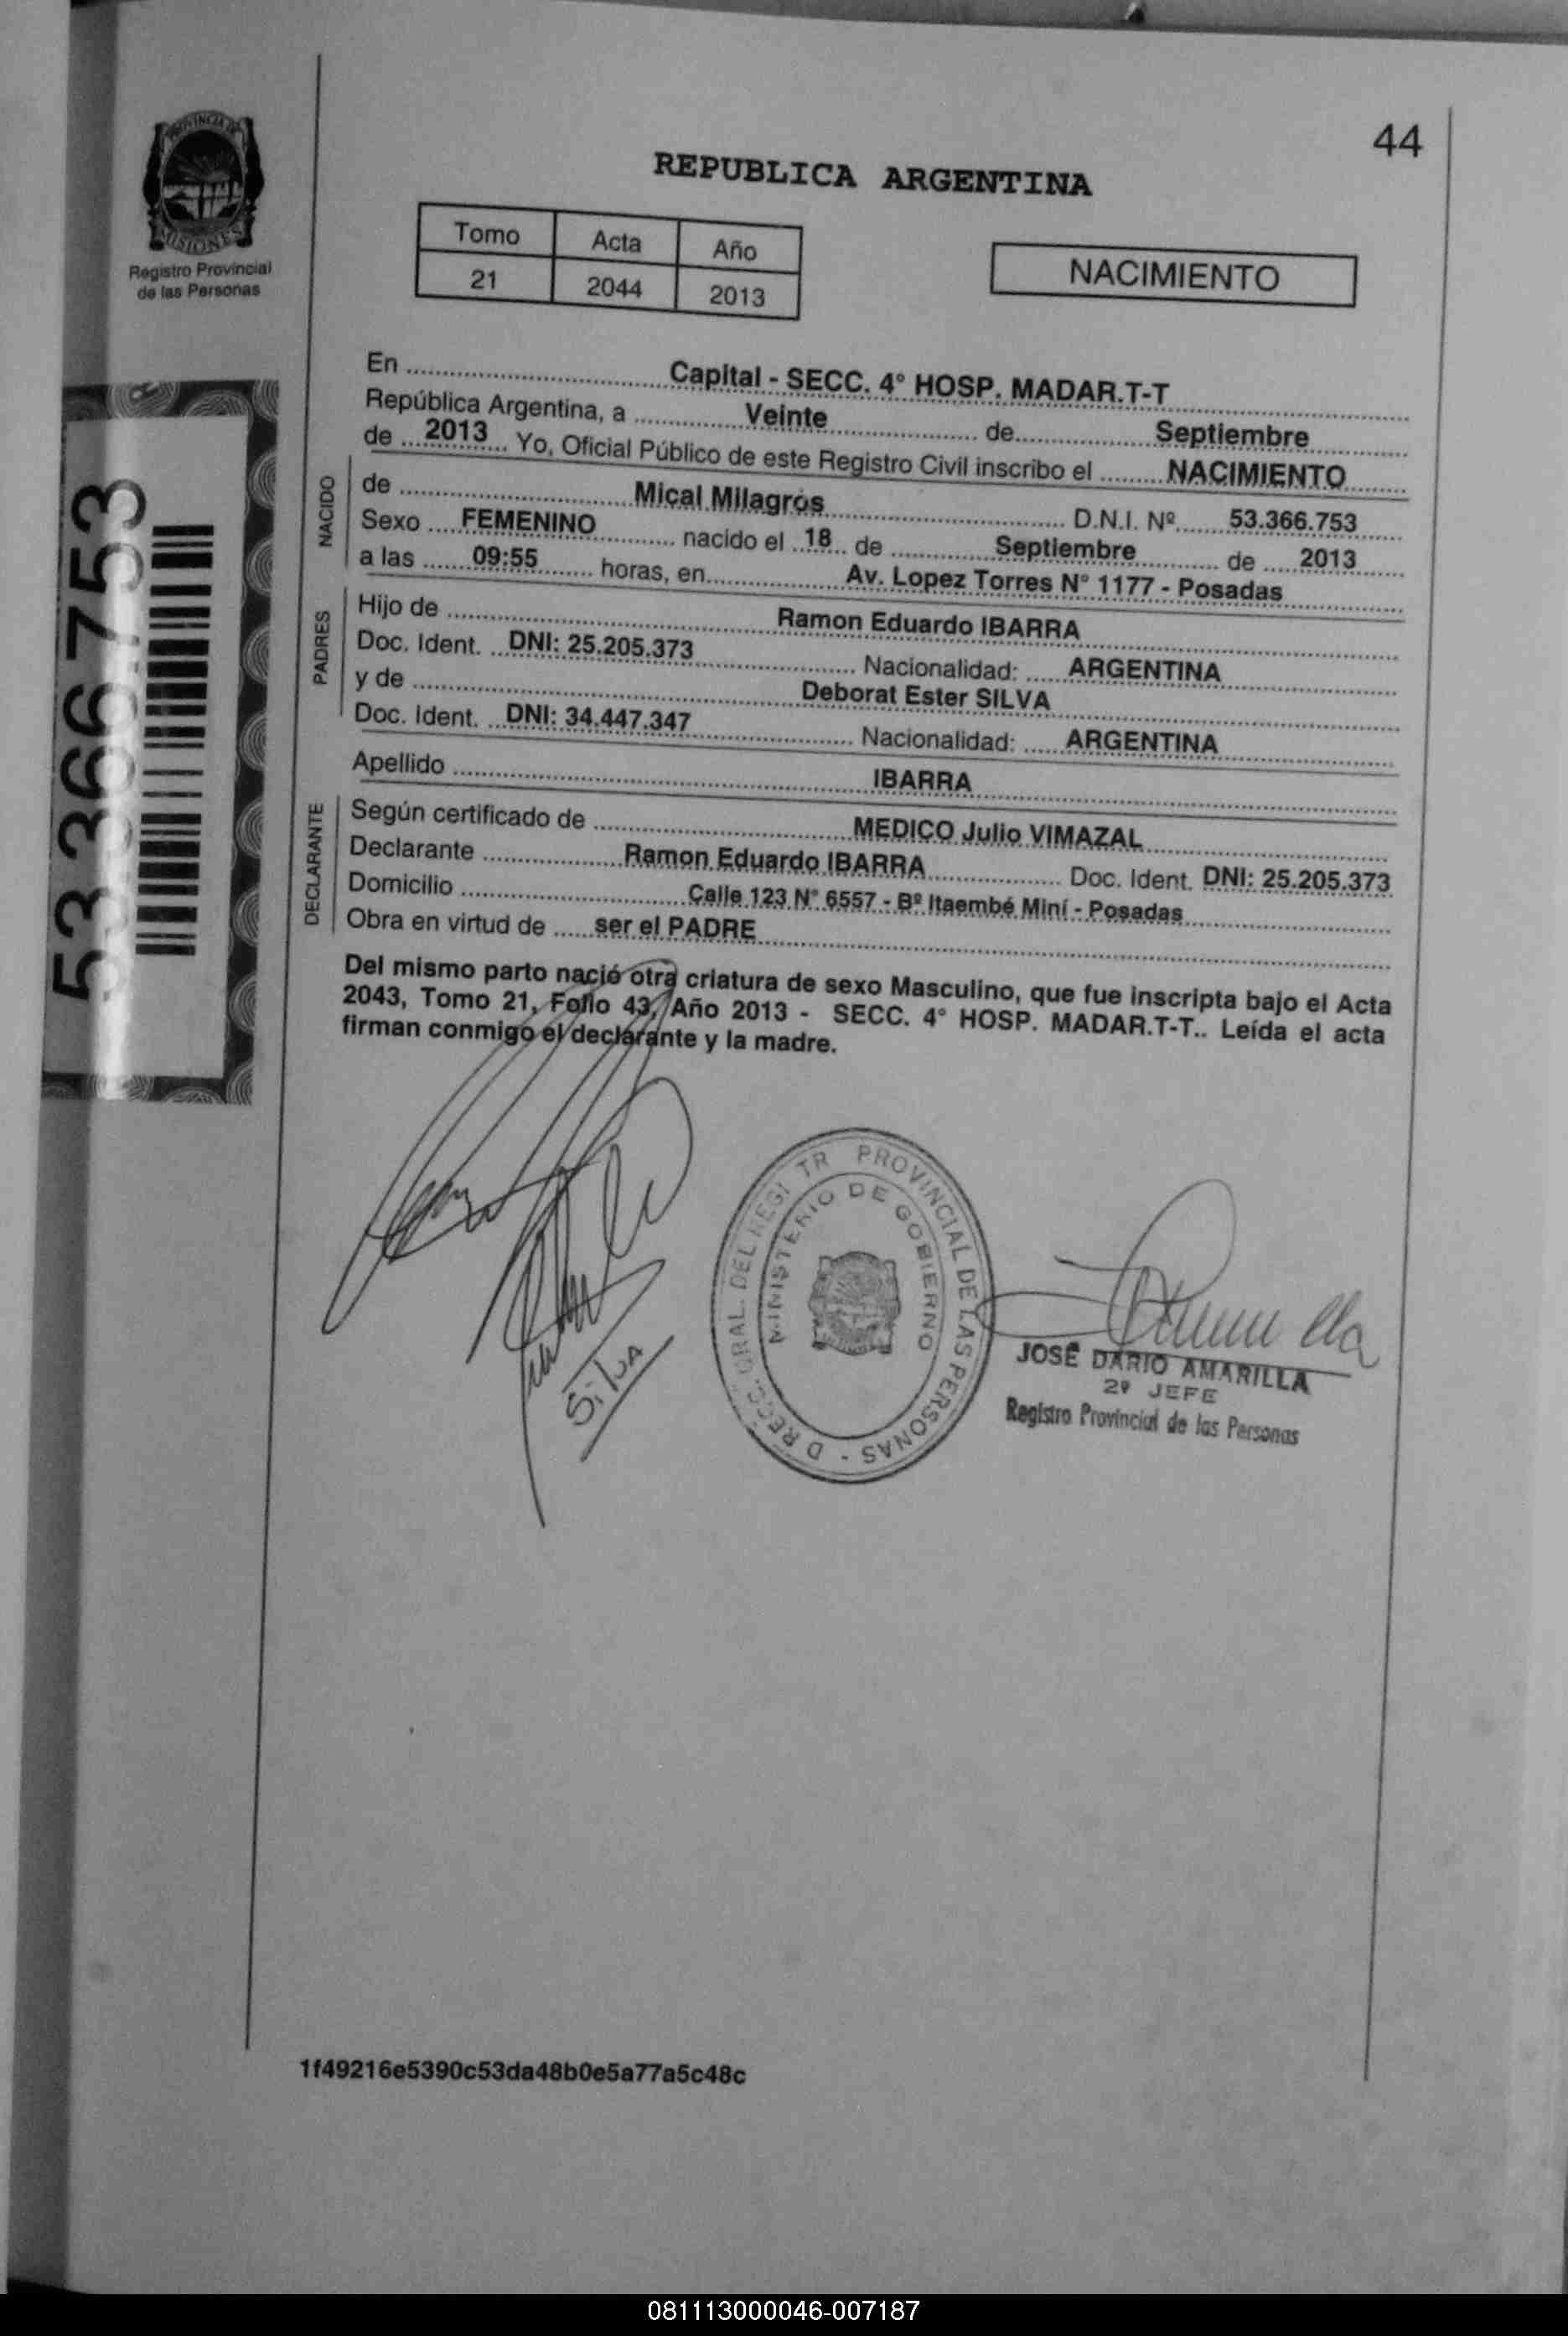 44
PROVINCIA DE
MISIONES
Registro Provincial
de las Personas
REPUBLICA ARGENTINA
Tomo Acta Año
21 2044 2013
NACIMIENTO
53.366.753
En Capital - SECC. 4° HOSP. MADAR.T-T
República Argentina, a Veinte de Septiembre
de 2013 Yo, Oficial Público de este Registro Civil inscribo el NACIMIENTO
NACIDO
de Mical Milagros D.N.I. Nº 53.366.753
Sexo FEMENINO nacido el 18 de Septiembre de 2013
a las 09:55 horas, en Av. Lopez Torres N° 1177 - Posadas
PADRES
Hijo de Ramon Eduardo IBARRA
Doc. Ident. DNI: 25.205.373 Nacionalidad: ARGENTINA
y de Deborat Ester SILVA
Doc. Ident. DNI: 34.447.347 Nacionalidad: ARGENTINA
Apellido IBARRA
DECLARANTE
Según certificado de MEDICO Julio VIMAZAL
Declarante Ramon Eduardo IBARRA Doc. Ident. DNI: 25.205.373
Domicilio Calle 123 N° 6557 - Bº Itaembé Miní - Posadas
Obra en virtud de ser el PADRE
Del mismo parto nació otra criatura de sexo Masculino, que fue inscripta bajo el Acta
2043, Tomo 21, Folio 43, Año 2013 - SECC. 4° HOSP. MADAR.T-T.. Leída el acta
firman conmigo el declarante y la madre.
Silva
D RECC. GRAL. DEL REGI TR PROVINCIAL DE LAS PERSONAS -
MINISTERIO DE GOBIERNO
JOSE DARIO AMARILLA
2º JEFE
Registro Provincial de las Personas
1f49216e5390c53da48b0e5a77a5c48c
081113000046-007187